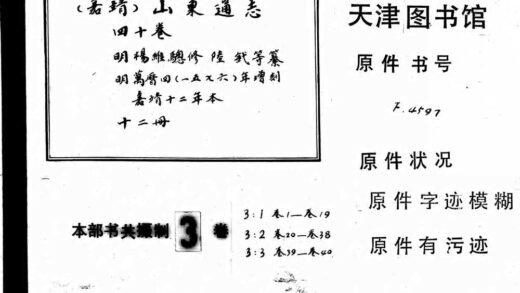 (嘉靖)山東通志
四十卷
明楊維總修 陸釴等纂
明萬曆四(一五七六)年增刻
嘉靖十二年本
十二冊
天津图书馆
原件 书号
F.4597
原件状况
原件字迹模糊
原件有污迹
本部书共摄制 3 卷
3:1 卷1—卷19
3:2 卷20—卷38
3:3 卷39—卷40